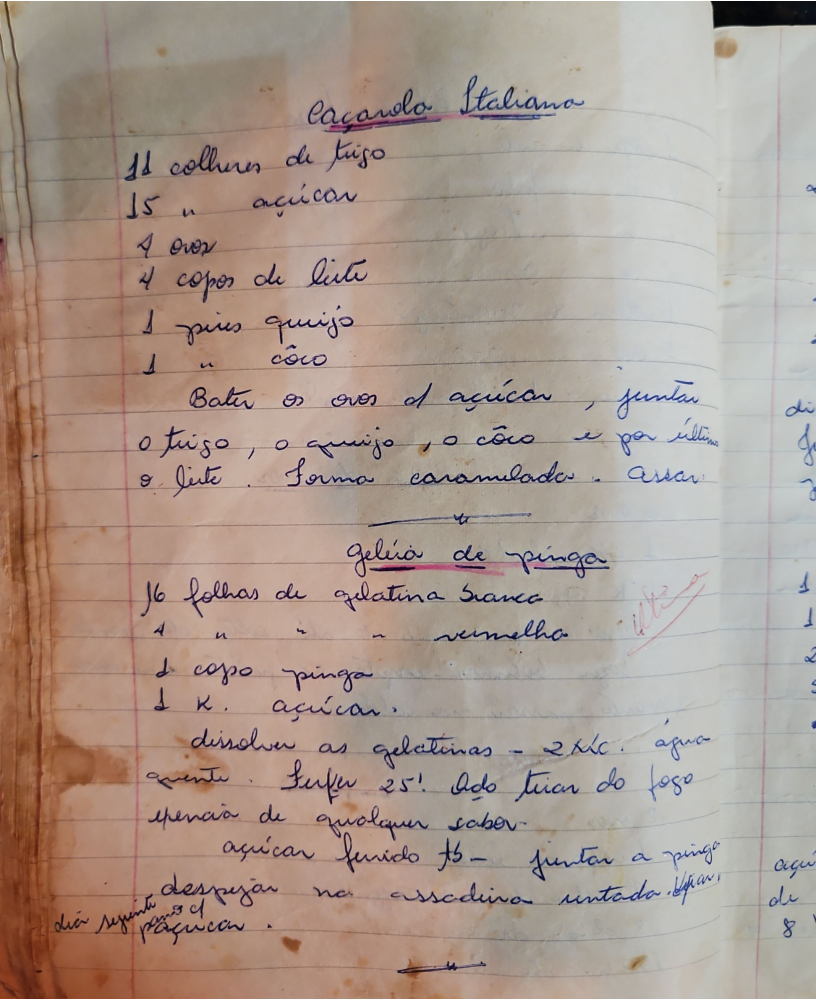 Caçarola Italiana
11 colheres de trigo
15 " açúcar
4 ovos
4 copos de leite
1 pires queijo
1 " côco
Bater os ovos c/ açúcar, juntar
o trigo, o queijo, o côco e por último
o leite. Forma caramelada. Assar.
Geléia de pinga
16 folhas de gelatina branca
4 " " " vermelha
ótima
1 copo pinga
1 K. açúcar.
dissolver as gelatinas - 2 água
quente. Ferver 25'. Ao tirar do fogo
essencia de qualquer sabor.
açúcar fervido tb - juntar a pinga
despejar na assadeira untada.
dia seguinte passar
açúcar.
di
1
1
2
açú
de
8